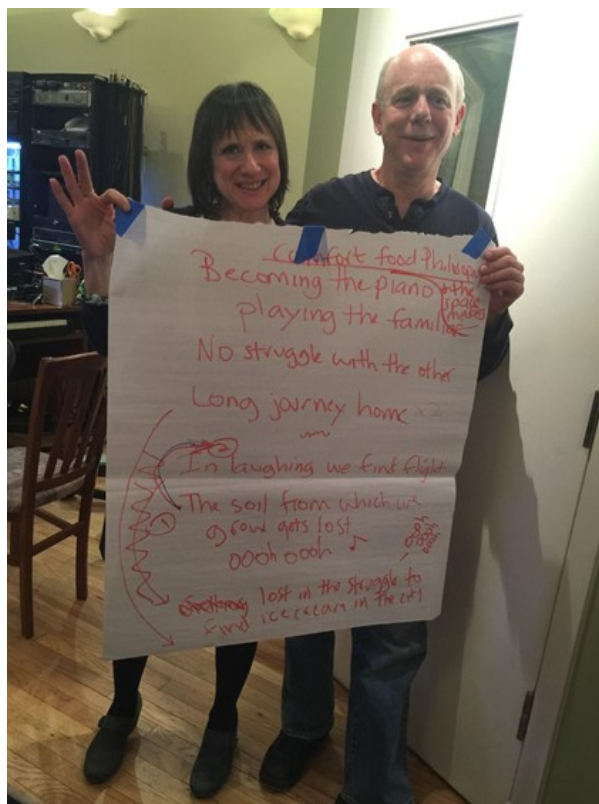 Comfort food
Becoming the piano
+ the space makes
playing the families
No struggle with the other
Long journey home x2
In laughing we find flight
2
The soil from which we
1
grow gets lost
oooh oooh ♪
lost in the struggle to
find ice cream in the city